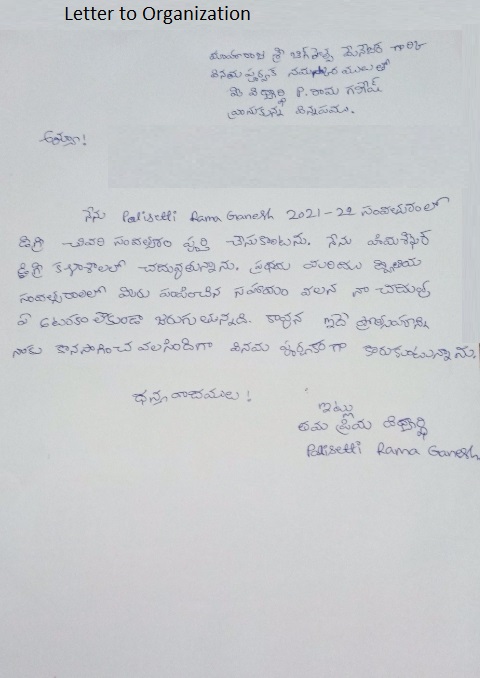 Letter to Organization
మహారాజ శ్రీ బిగ్ హెల్ప్ మేనేజర్ గారికి
వినయ పూర్వక నమస్కారములతో
మీ విద్యార్థి P. రామ గణేష్
వ్రాసుకున్న విన్నపము.
అయ్యా!
నేను Polisetti Rama Ganesh 2021-22 సంవత్సరంలో
డిగ్రీ చివరి సంవత్సరం పూర్తి చేసుకుంటాను. నేను
డిగ్రీ కళాశాలలో చదువుతున్నాను. ప్రథమ మరియు ద్వితీయ
సంవత్సరాలలో మీరు పంపించిన సహాయం వలన నా చదువు
ఏ ఆటంకం లేకుండా జరుగుతున్నది. కావున ఇదే ప్రోత్సాహాన్ని
నాకు కొనసాగించ వలసిందిగా వినయ పూర్వకంగా కోరుకుంటున్నాను.
ధన్యవాదములు!
ఇట్లు
తమ ప్రియ విద్యార్థి
Polisetti Rama Ganesh